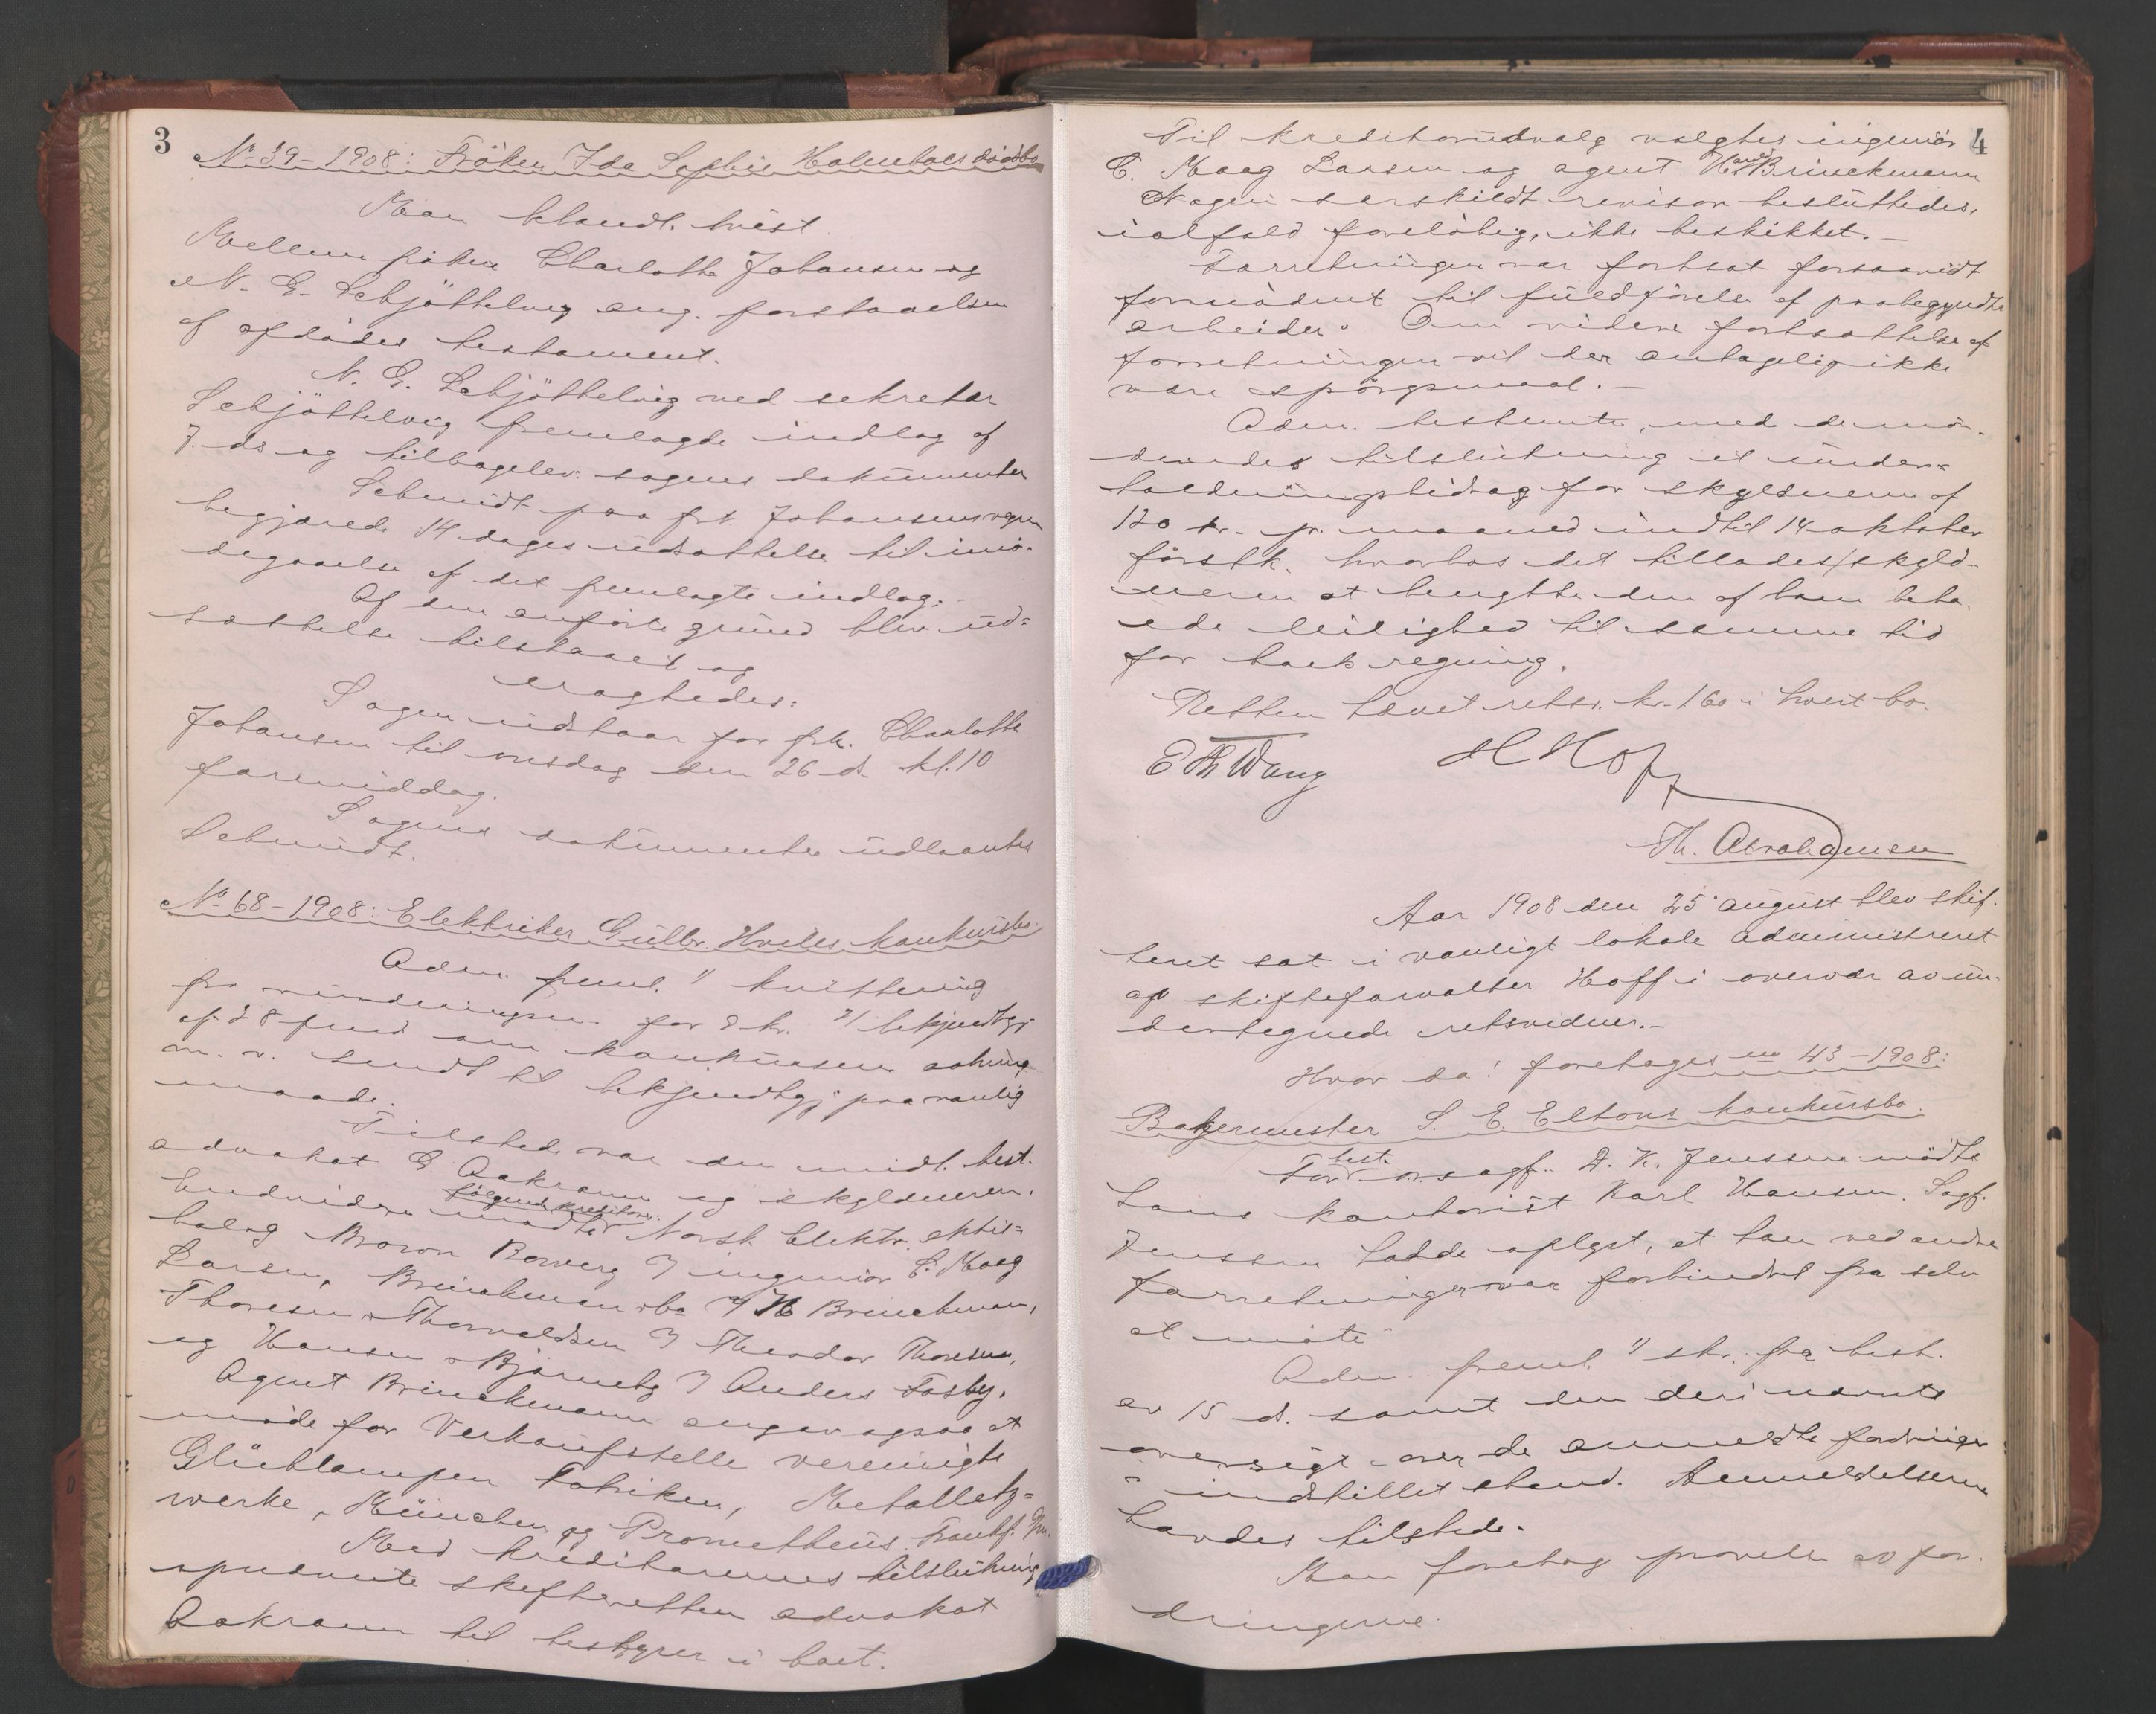 3
No 39 - 1908: Fröken Ida Sophie Holmboes dödsbo
Man behandl. tvist
Mellem fröken Charlotte Johansen og
N. G. Schjöttelvig ang. forstaaelsen
af afdödes testament.
N. G. Schjöttelvig ved sekretær
Schjöttelvig fremlagde indlæg af
7. ds og tilbagelev. sagens dokumenter
Schmidt paa frk Johansens vegne
begjærede 14 dages udsættelse til imö-
degaaelse af det fremlagte indlæg.
Af den anförte grund blev ud-
sættelse tilstaaet og
eragtedes:
Sagen udstaar for frk. Charlotte
Johansen til onsdag den 26 d. kl. 10
formiddag.
Sagens dokumenter udlaantes
Schmidt.
No 68 - 1908: Elektriker Gullbr. Hviles konkursbo.
Adm. freml. 1/ kvittering
fra for 8 kr. 2/ bekjendtgj
af 28 om konkursens aabning
m. v. sendt til bekjendtgj paa vanlig
maade.
Tilstede var den midl. best.
advokat G. Aakrann og skyldneren.
Endvidere mödte følgende kreditorer: Norsk Elektr. aktie-
bolag Brown Bowery v/ ingeniör C. Maag
Larsen, Brinckmann & Co v/ H Brinckmann,
Thoresen & Thorvaldsen v/ Theodor Thoresen,
og Hansen & Bjørneby v/ Anders Fosby.
Agent Brinckmann angav ogsaa at
möde for Verkaufstelle vereinigte
Glühlampen Fabriken, Metalletz-
werke, München og Prometheus Frankf. a/m.
Med kreditorernes tilslutning
opnævnte skifteretten advokat
Aakrann til bestyrer i boet.
4
Til kreditorudvalg valgtes ingeniör
C. Maag Larsen og agent Hans Brinckmann
Nogen særskildt revisor besluttedes,
ialfald forelöbig, ikke beskikket. -
Forretningen var fortsat forsaavidt
fornödent til fuldförelse af paabegyndte
arbeider. Om videre fortsættelse af
forretningen vil der antagelig ikke
være spörgsmaal. -
Adm. bestemte, med de mö-
dendes tilslutning et under-
holdningsbidrag for skyldneren af
120 kr. pr. maaned indtil 14 oktober
förstk. hvorhos det tillades skyld-
neren at benytte den af ham bebo-
ede leilighed til samme tid
for boets regning.
Retten hævet retsv. kr. 1.60 i hvert bo.
E Th Wang H Hoff
Th. Abrahamsen
Aar 1908 den 25 august blev skif-
teret sat i vanligt lokale administreret
af skifteforvalter Hoff i overvær av un-
dertegnede retsvidner. -
Hvor da: foretages no 43 - 1908:
Bakermester S. E. Eltons konkursbo.
For best. o. r. sagf. D. K. Jenssen mödte
hans kontorist Karl Hansen. Sagf.
Jenssen hadde oplyst, at han ved andre
forretninger var forhindret fra selv
at møte.
Adm. freml. 1/ skr. fra best.
av 15 d. samt den deri nævnte
oversigt over de anmeldte fordringer
i indstillet stand. Anmeldelserne
havdes tilstede.
Man foretog prøvelse av for-
dringerne.